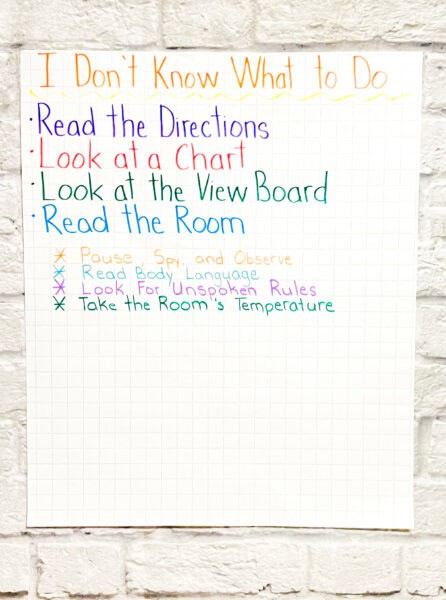 I Don't Know What to Do
· Read the Directions
· Look at a Chart
· Look at the View Board
· Read the Room
* Pause, Spy, and Observe
* Read Body Language
* Look For Unspoken Rules
* Take the Room's Temperature